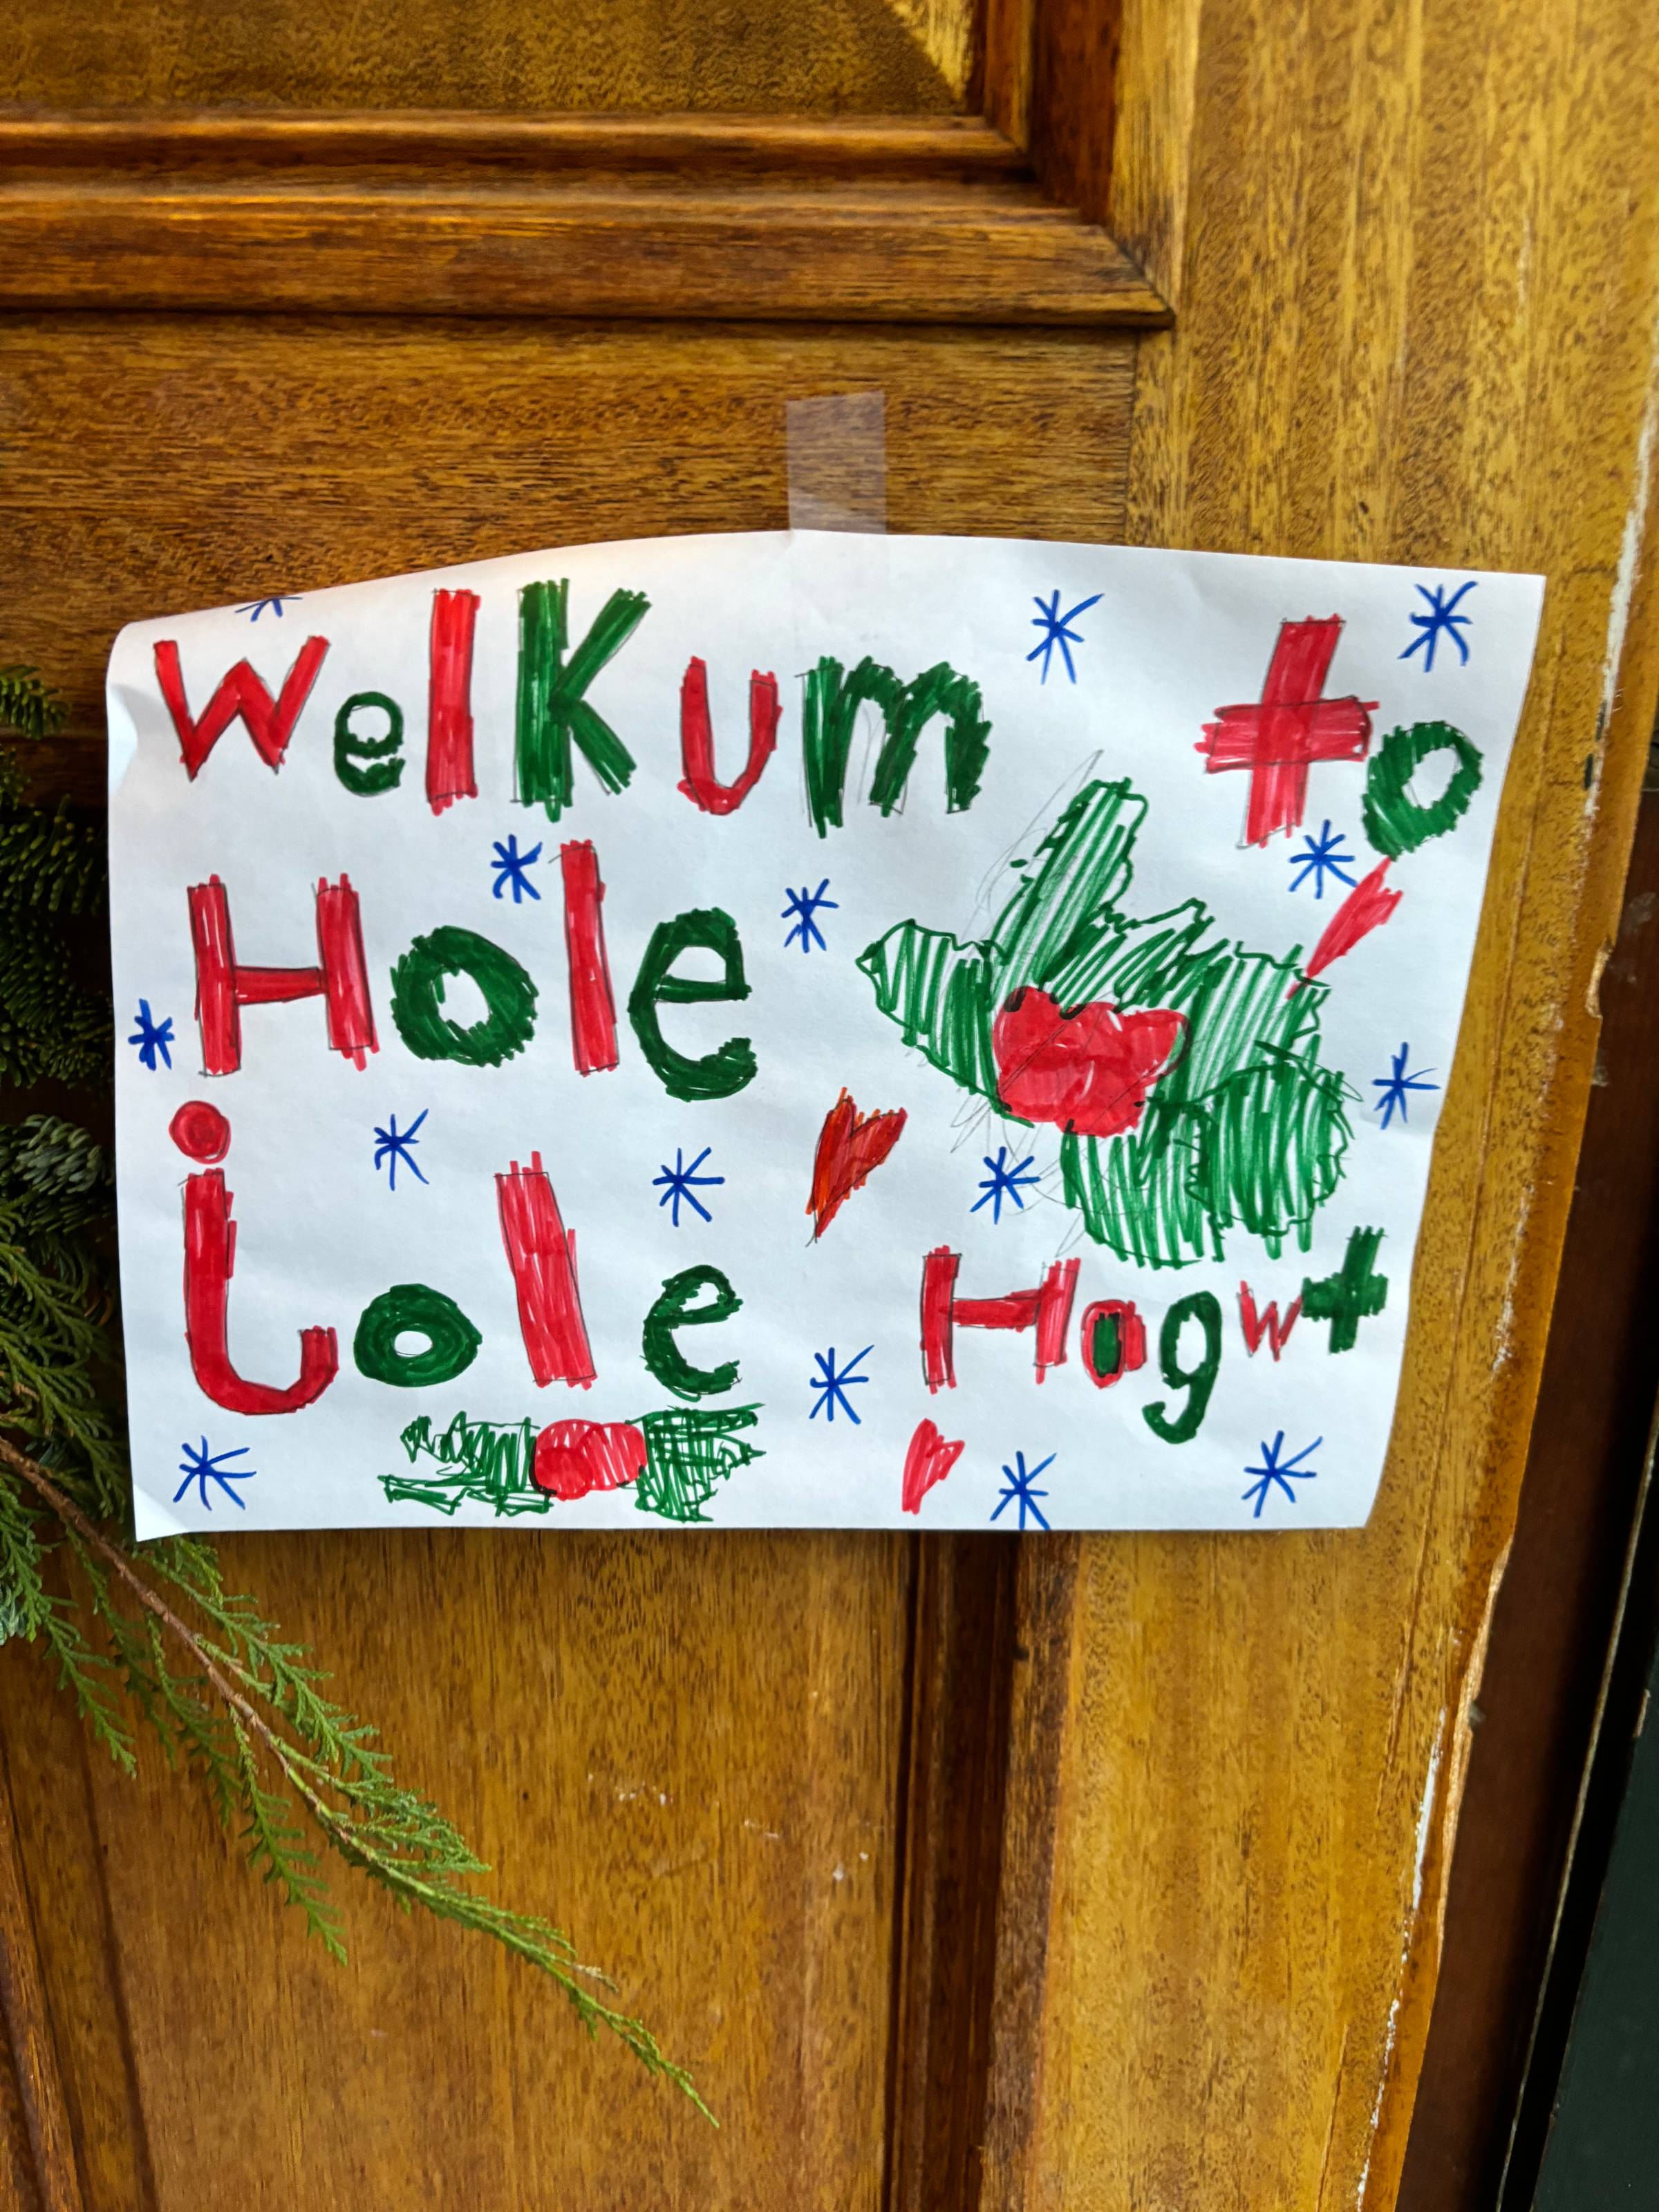 Welkum to
Hole
jole Hagwt